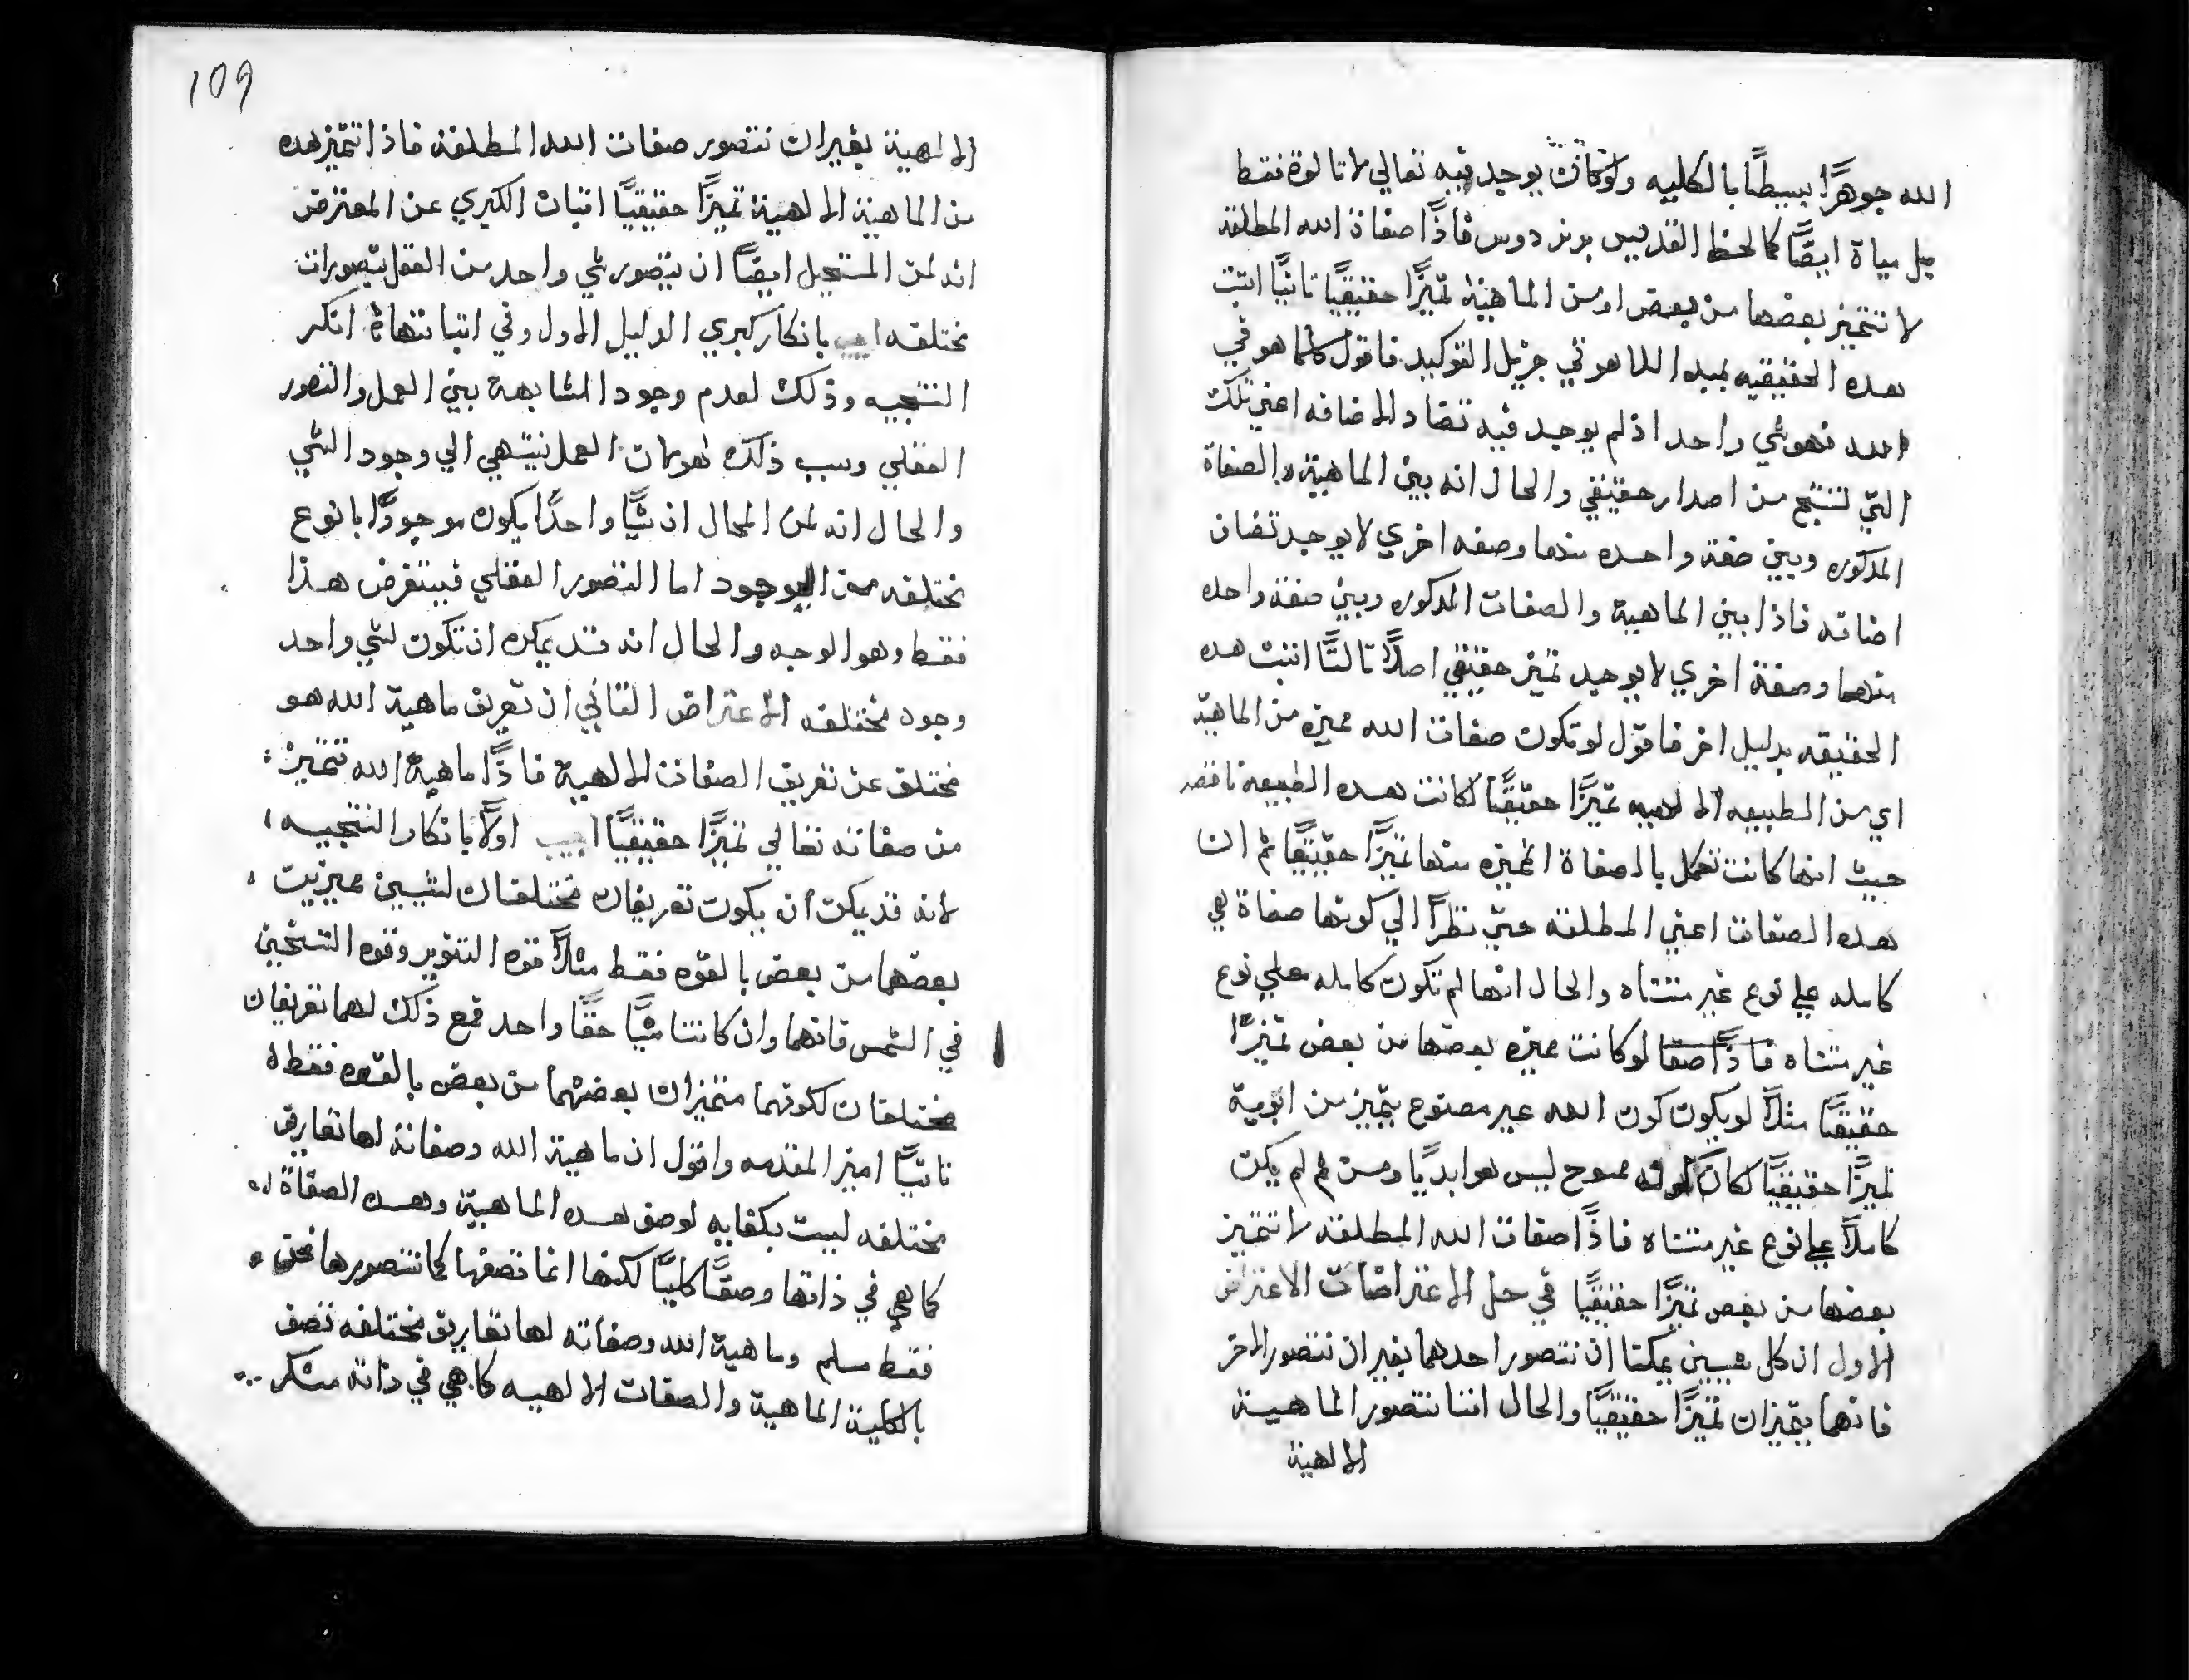 الله جوهرًا بسيطًا بالكليه ولو كان يوجد فيه تعالي لا تالوة فقط
بل مياة ايضًا كما لحظ القديس برنردوس فاذًا صفاة الله المطلقة
لا تتميز بعضها من بعض او من الماهية تميزًا حقيقيًا ثانيًا اتبت
هده الحقيقيه بمبدا اللاهوتي جزيل التوكيد فاقول كلما هو في
الله فهو شي واحد اذ لم يوجد فيه تضاد الاضافه اعني تلك
التي تنتج من اصدار حقيقي والحال انه بين الماهية والصفاة
المدكوره وبين صفة واحده منها وصفه اخري لا يوجد تضاد
اضافه فاذا بين الماهية والصفات المدكوره وبين صفة واحده
منهما وصفة اخري لا يوجد تميز حقيقي اصلًا تالتًا اتبت هده
الحقيقه بدليل اخر فاقول لو تكون صفات الله مميزه من الماهية
اي من الطبيعه الالهيه تميزًا حقيقيًا لكانت هده الطبيعة ناقصه
حيث انها كانت تكمل بالصفاة المميزه منها تميزًا حقيقيًا ثم ان
هده الصفات اعني المطلقه حتي نظرًا الي كونها صفاة هي
كامله علي نوع غير متناه والحال انها لم تكون كامله علي نوع
غير متناه فاذًا صفا لو كانت مميزه بعضها من بعض تميزًا
حقيقيًا مثلًا لو يكون كون الله غير مصنوع يتميز من ابدية
تميزًا حقيقيًا لكان كونه ليس هو ابديًا ومن ثم لم يكن
كاملًا علي نوع غير متناه فاذًا صفات الله المطلقه لا تتميز
بعضها من بعض تميزًا حقيقيًا في حل الاعتراضات الاعتراض
الاول ان كل شيين يمكننا ان نتصور احدهما بغير ان نتصور الاخر
فانهما يتميزان تميزًا حقيقيًا والحال اننا نتصور الماهية
الالهية
109
الالهية بغير ان نتصور صفات الله المطلقه فاذا تتميز هده
من الماهية الالهية تميزًا حقيقيًا اتبات الكبري عن المعترض
انه لمن المستحيل ايضًا ان يتصور شي واحد من العقل بتصورات
مختلفه اجيب بانكار كبري الدليل الاول وفي اتباتها انكر
النتيجه وذلك لعدم وجود المشابهة بين العمل والتصور
العقلي وسبب ذلك هو لان العمل ينتهي الي وجود الشي
والحال انه لمن المحال ان شيًا واحدًا يكون موجودًا بانوع
مختلفه من الوجود اما التصور العقلي فيتفرض هذا
فقط وهو الوجه والحال انه قد يمكن ان تكون لشي واحد
وجوه مختلفه الاعتراض التاني ان تعريف ماهية الله هو
مختلف عن تعريف الصفات الالهية فاذًا ماهية الله تتميز
من صفاته تعالي تميزًا حقيقيًا اجيب اولًا بانكار النتيجه
لانه قد يمكن ان يكون تعريفان مختلفان لشيين مميزين
بعضهما من بعض بالقوه فقط مثلًا قوه التنوير وقوه التسخين
في الشمس فانهما وان كانتا شيًا حقًا واحد فمع ذلك لهما تعريفان
مختلفان لكونهما متميزان بعضهما من بعض بالقوه فقط
تانيًا اميز المقدمه واقول ان ماهية الله وصفاته لها تعاريف
مختلفه ليست بكفايه لوصف هده الماهية وهده الصفاة
كما هي في ذاتها وصفًا كليًا لكنها انما تصفها كما نتصورها نحن
فقط مسلم وماهية الله وصفاته لها تعاريف مختلفه تصف
بالكلية الماهية والصفات الالهيه كما هي في ذاته منكر